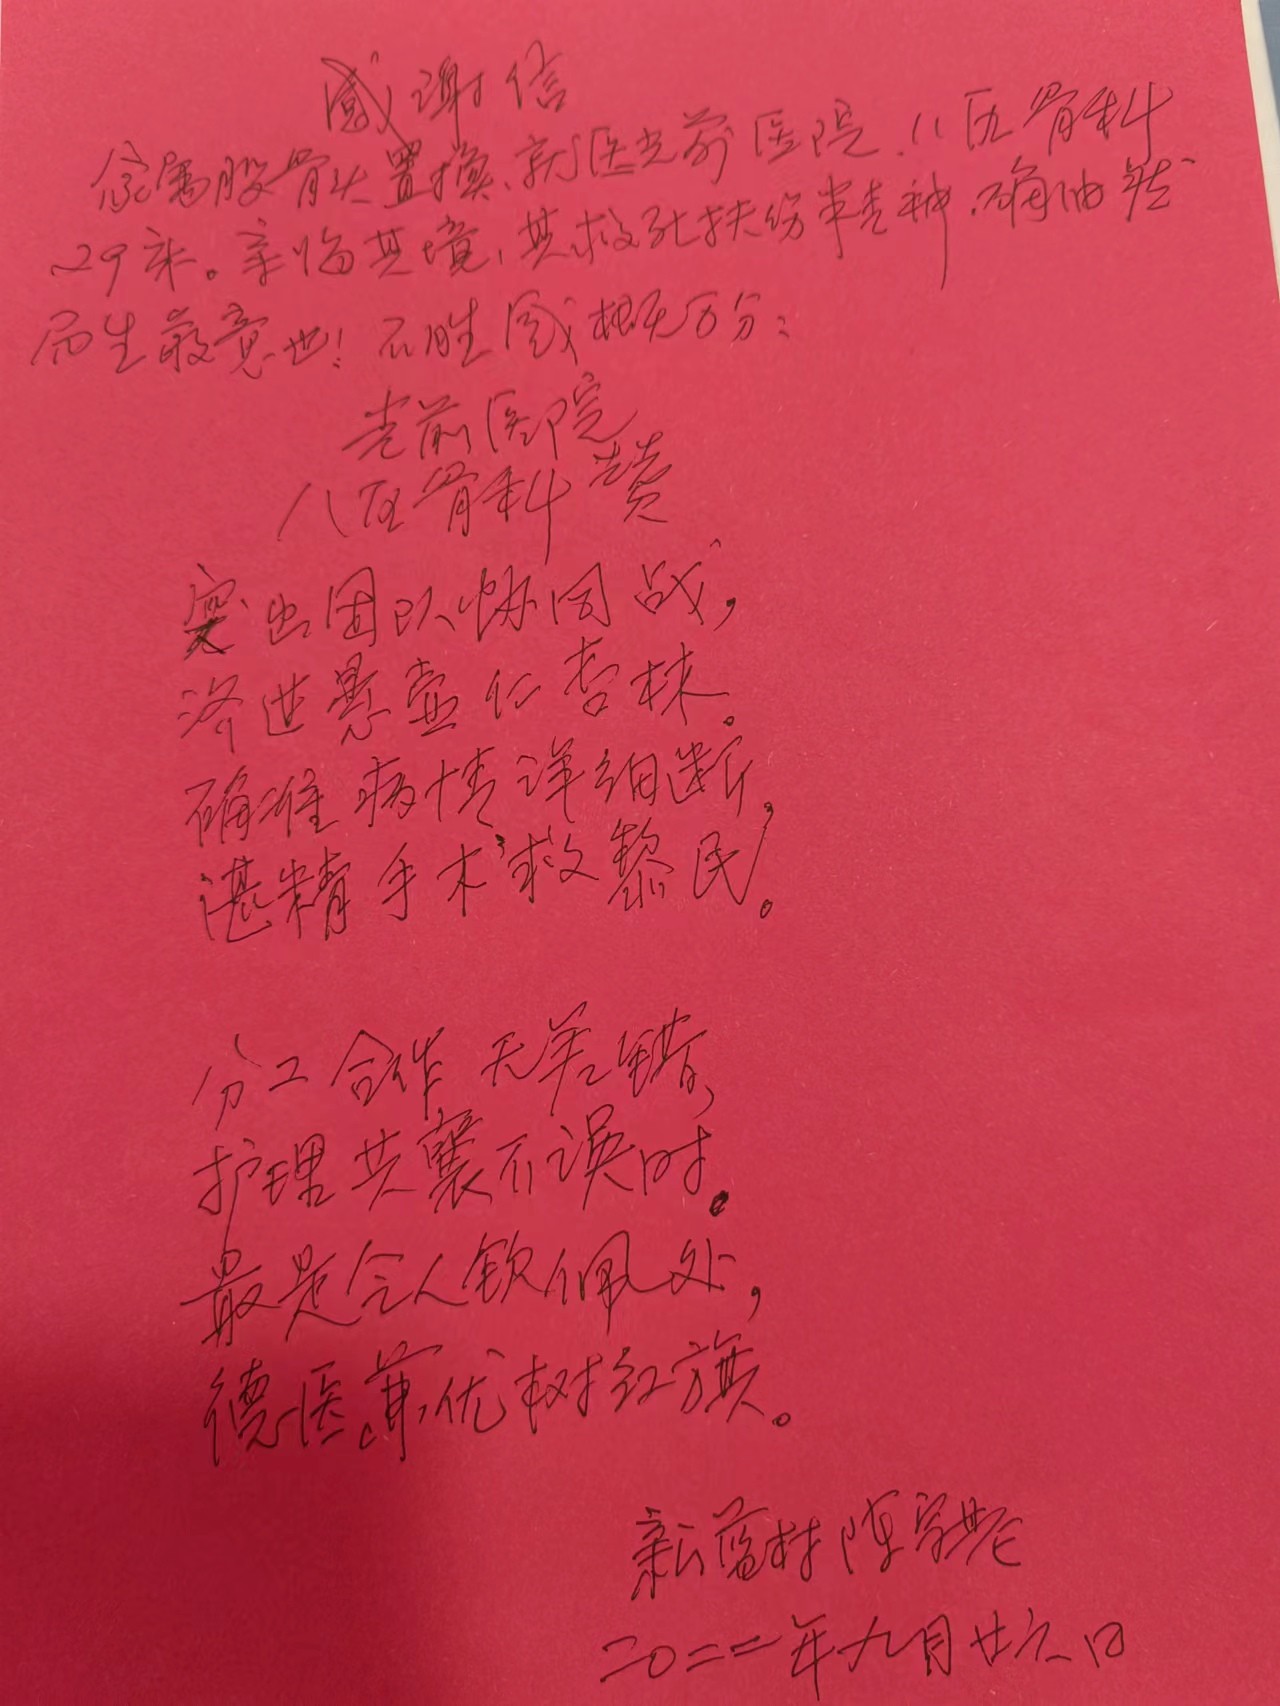 感谢信
家属股骨头置换、就医光前医院、八区骨科
29床。亲临其境、其救死扶伤革精神、确油然
而生敬意也！不胜感概万分：
光前医院
八区骨科 赞
突出团队协同战，
济世悬壶仁杏林。
确准病情详细断，
湛精手术救黎民。
分工合作无差错，
护理共襄不误时。
最是令人钦佩处，
德医兼优树红旗。
新蓝村 陈
二〇二二年九月廿六日